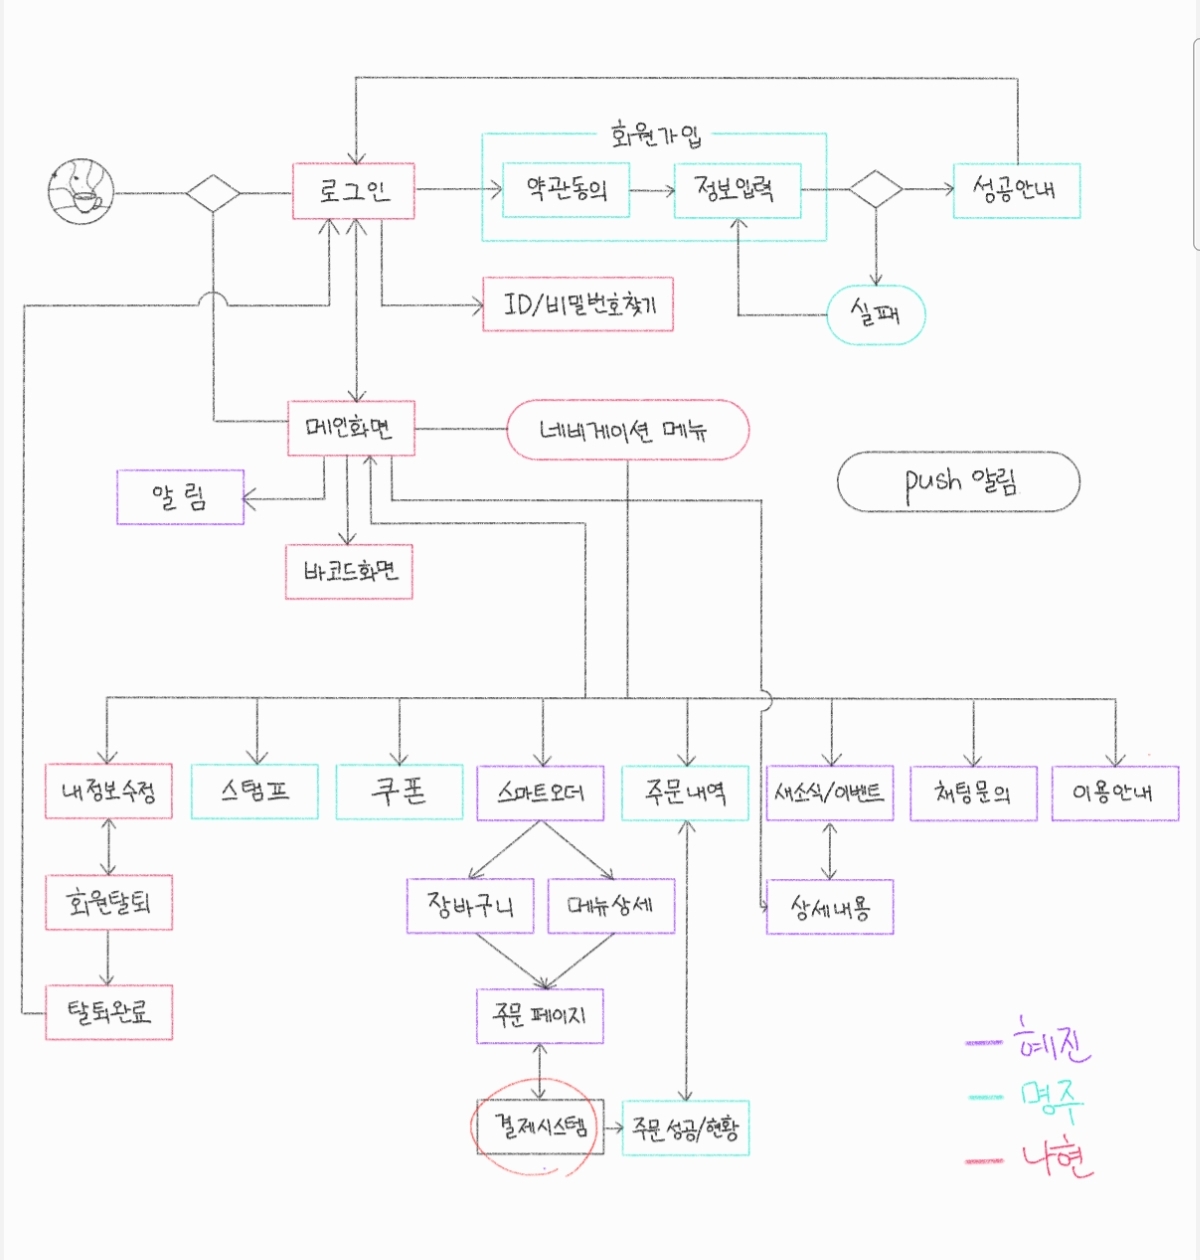 회원가입
로그인
약관동의
정보입력
성공안내
ID/비밀번호찾기
실패
메인화면
네비게이션 메뉴
push 알림
알림
바코드화면
내정보수정
스탬프
쿠폰
스마트오더
주문내역
새소식/이벤트
채팅문의
이용안내
회원탈퇴
장바구니
메뉴상세
상세내용
탈퇴완료
주문 페이지
결제시스템
주문 성공/현황
혜진
명주
나현